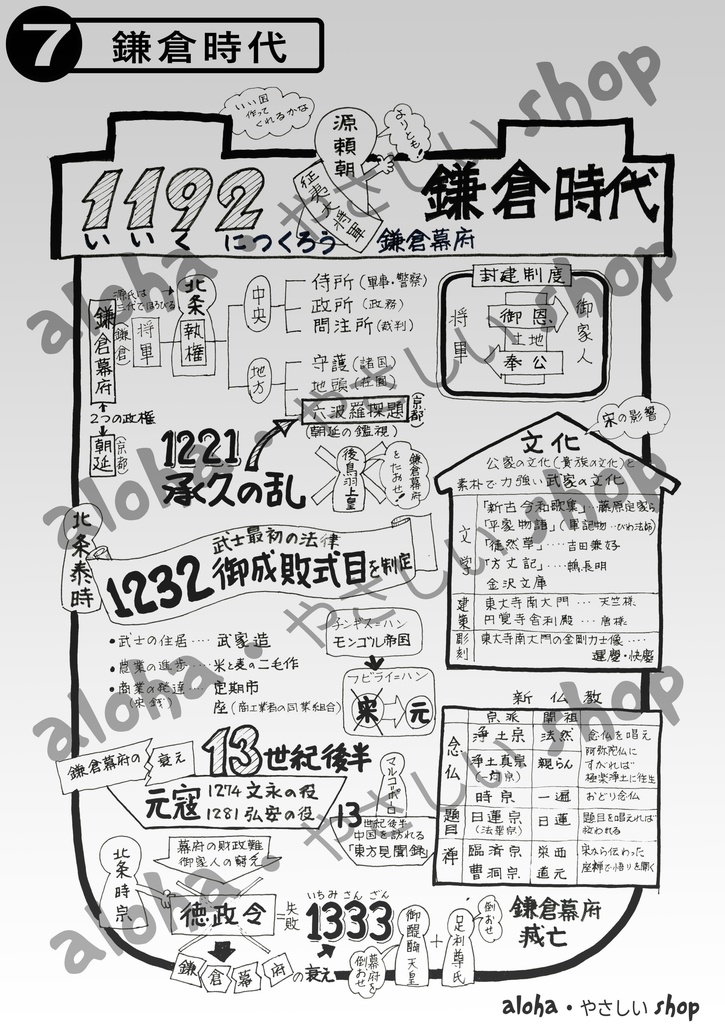 7 鎌倉時代
いい国
作って
くれるかな
源頼朝
よりとも!
征夷大将軍
1192
いいくにつくろう 鎌倉幕府
鎌倉時代
源氏は
三代でほろびる
鎌倉幕府
(鎌倉)
将軍
北条
執権
中央
侍所(軍事・警察)
政所(政務)
問注所(裁判)
地方
守護(諸国)
地頭(荘園)
六波羅探題(京都)
(朝廷の監視)
2つの政権
朝廷(京都)
封建制度
将軍
御恩
土地
奉公
御家人
1221
承久の乱
後鳥羽上皇
鎌倉幕府
をたおせ!
宋の影響
文化
公家の文化(貴族の文化)と
素朴で力強い武家の文化
文学
「新古今和歌集」…藤原定家ら
「平家物語」(軍記物…びわ法師)
「徒然草」……吉田兼好
「方丈記」……鴨長明
金沢文庫
建築
東大寺南大門…天竺様
円覚寺舎利殿…唐様
彫刻
東大寺南大門の金剛力士像……
運慶・快慶
北条泰時
武士最初の法律
1232 御成敗式目を制定
・武士の住居……武家造
・農業の進歩……米と麦の二毛作
・商業の発達……定期市
座(商工業者の同業組合)
チンギス=ハン
モンゴル帝国
フビライ=ハン
宋 元
鎌倉幕府の衰え
13世紀後半
元寇
1274 文永の役
1281 弘安の役
マルコ=ポーロ
13
世紀後半
中国を訪れる
「東方見聞録」
新仏教
宗派 開祖
念仏
浄土宗 法然 念仏を唱え
阿弥陀仏に
すがれば
極楽浄土に往生
浄土真宗
(一向宗)
親らん
時宗 一遍 おどり念仏
題目
日蓮宗
(法華宗)
日蓮
題目を唱えれば
救われる
禅
臨済宗 栄西
曹洞宗 道元
宋から伝わった
座禅で悟りを開く
北条時宗
幕府の財政難
御家人の窮乏
徳政令
=失敗
鎌倉幕府の衰え
いちみさんざん
1333
御醍醐天皇
+
足利尊氏
幕府を
倒おせ!
倒おせ
鎌倉幕府
滅亡
aloha・やさしいshop
aloha・やさしいshop
aloha・やさしいshop
aloha・やさしいshop
aloha・やさしい shop